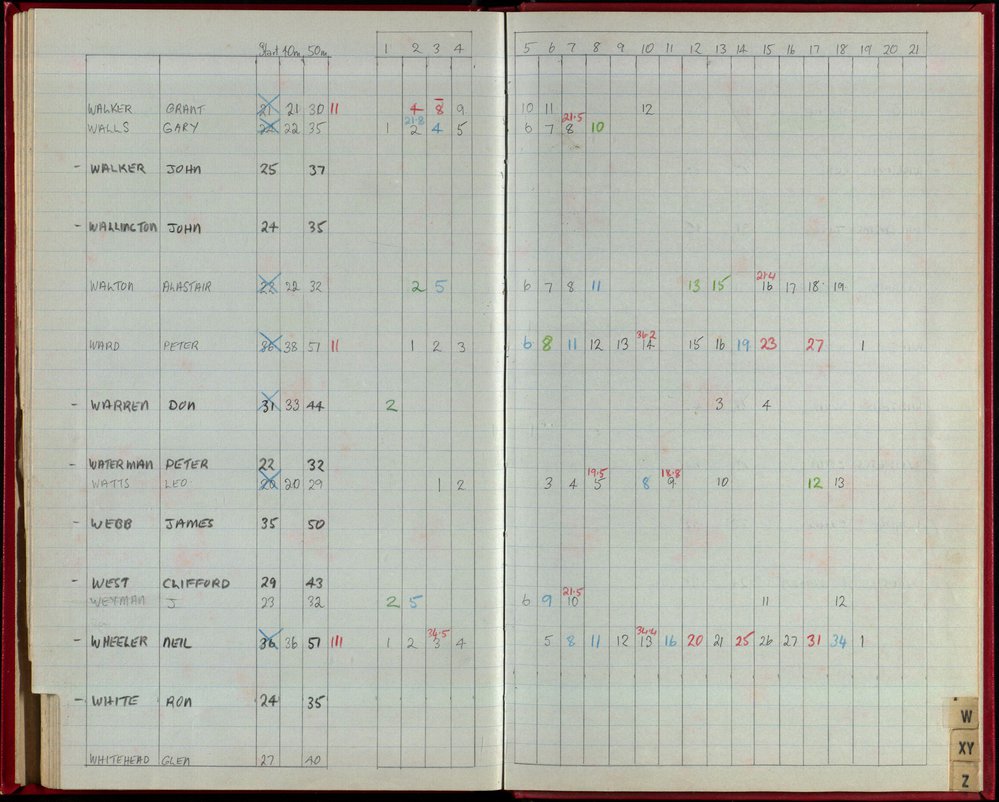 Start 40m 50m 1 2 3 4 5 6 7 8 9 10 11 12 13 14 15 16 17 18 19 20 21
WALKER GRANT 21 21 30 11 4 8 9 10 11 12
21.8 21.5
WALLS GARY 22 22 35 1 2 4 5 6 7 8 10
- WALKER JOHN 25 37
- WALLINGTON JOHN 24 35
21.4
WALTON ALASTAIR 22 22 32 2 5 6 7 8 11 13 15 16 17 18 19
36.2
WARD PETER 36 38 57 11 1 2 3 6 8 11 12 13 14 15 16 19 23 27 1
- WARREN DON 31 33 44 2 3 4
- WATERMAN PETER 22 32
19.5 18.8
WATTS LEO 20 20 29 1 2 3 4 5 8 9 10 12 13
- WEBB JAMES 35 50
- WEST CLIFFORD 29 43
21.5
WEYMAN J 23 32 2 5 6 9 10 11 12
34.5 34.4
- WHEELER NEIL 36 36 51 111 1 2 3 4 5 8 11 12 13 16 20 21 25 26 27 31 34 1
- WHITE RON 24 35
WHITEHEAD GLEN 27 40
W
XY
Z